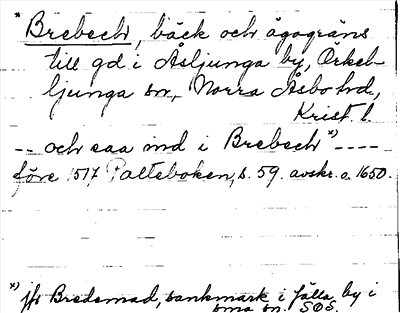 * Brebech, bäck och ägogräns
till gd i Åsljunga by, Örkel-
ljunga sn, Norra Åsbo hd,
Krist. l.
-- och saa ind i Brebech *) ----
före 1517 Palteboken, s. 59. avskr. o. 1650.
*) jfr Bredemad, sankmark i fälla by i
sma sn. SOS.